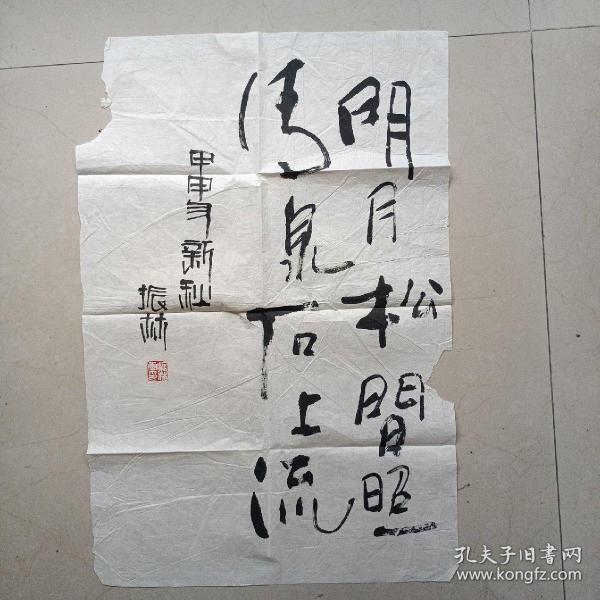 明月松間照
清泉石上流
甲申年新秋
振林
孔夫子旧书网
www.kongfz.com